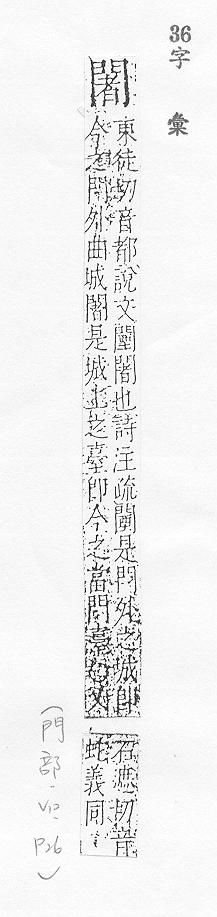 36字 彙
闍
東徒切音都說文闉闍也詩注疏闉是門外之城即
今之門外曲城闍是城上之臺即今之當門臺也又
石遮切音
蛇義同
(門部, V12, P26)